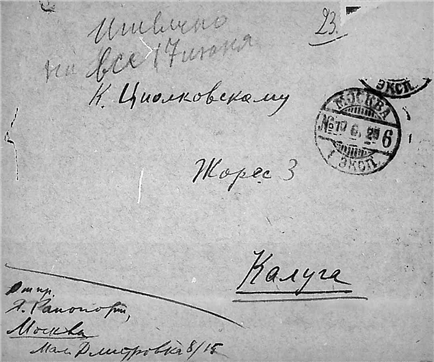 23.
на все 17 июня
К. Циолковскому
ЭКСП.
МОСКВА
6
1 ЭКСП.
Жорес 3
Калуга
Отпр.
Я. Рапопорт,
Москва
Мал. Дмитровка 8/15